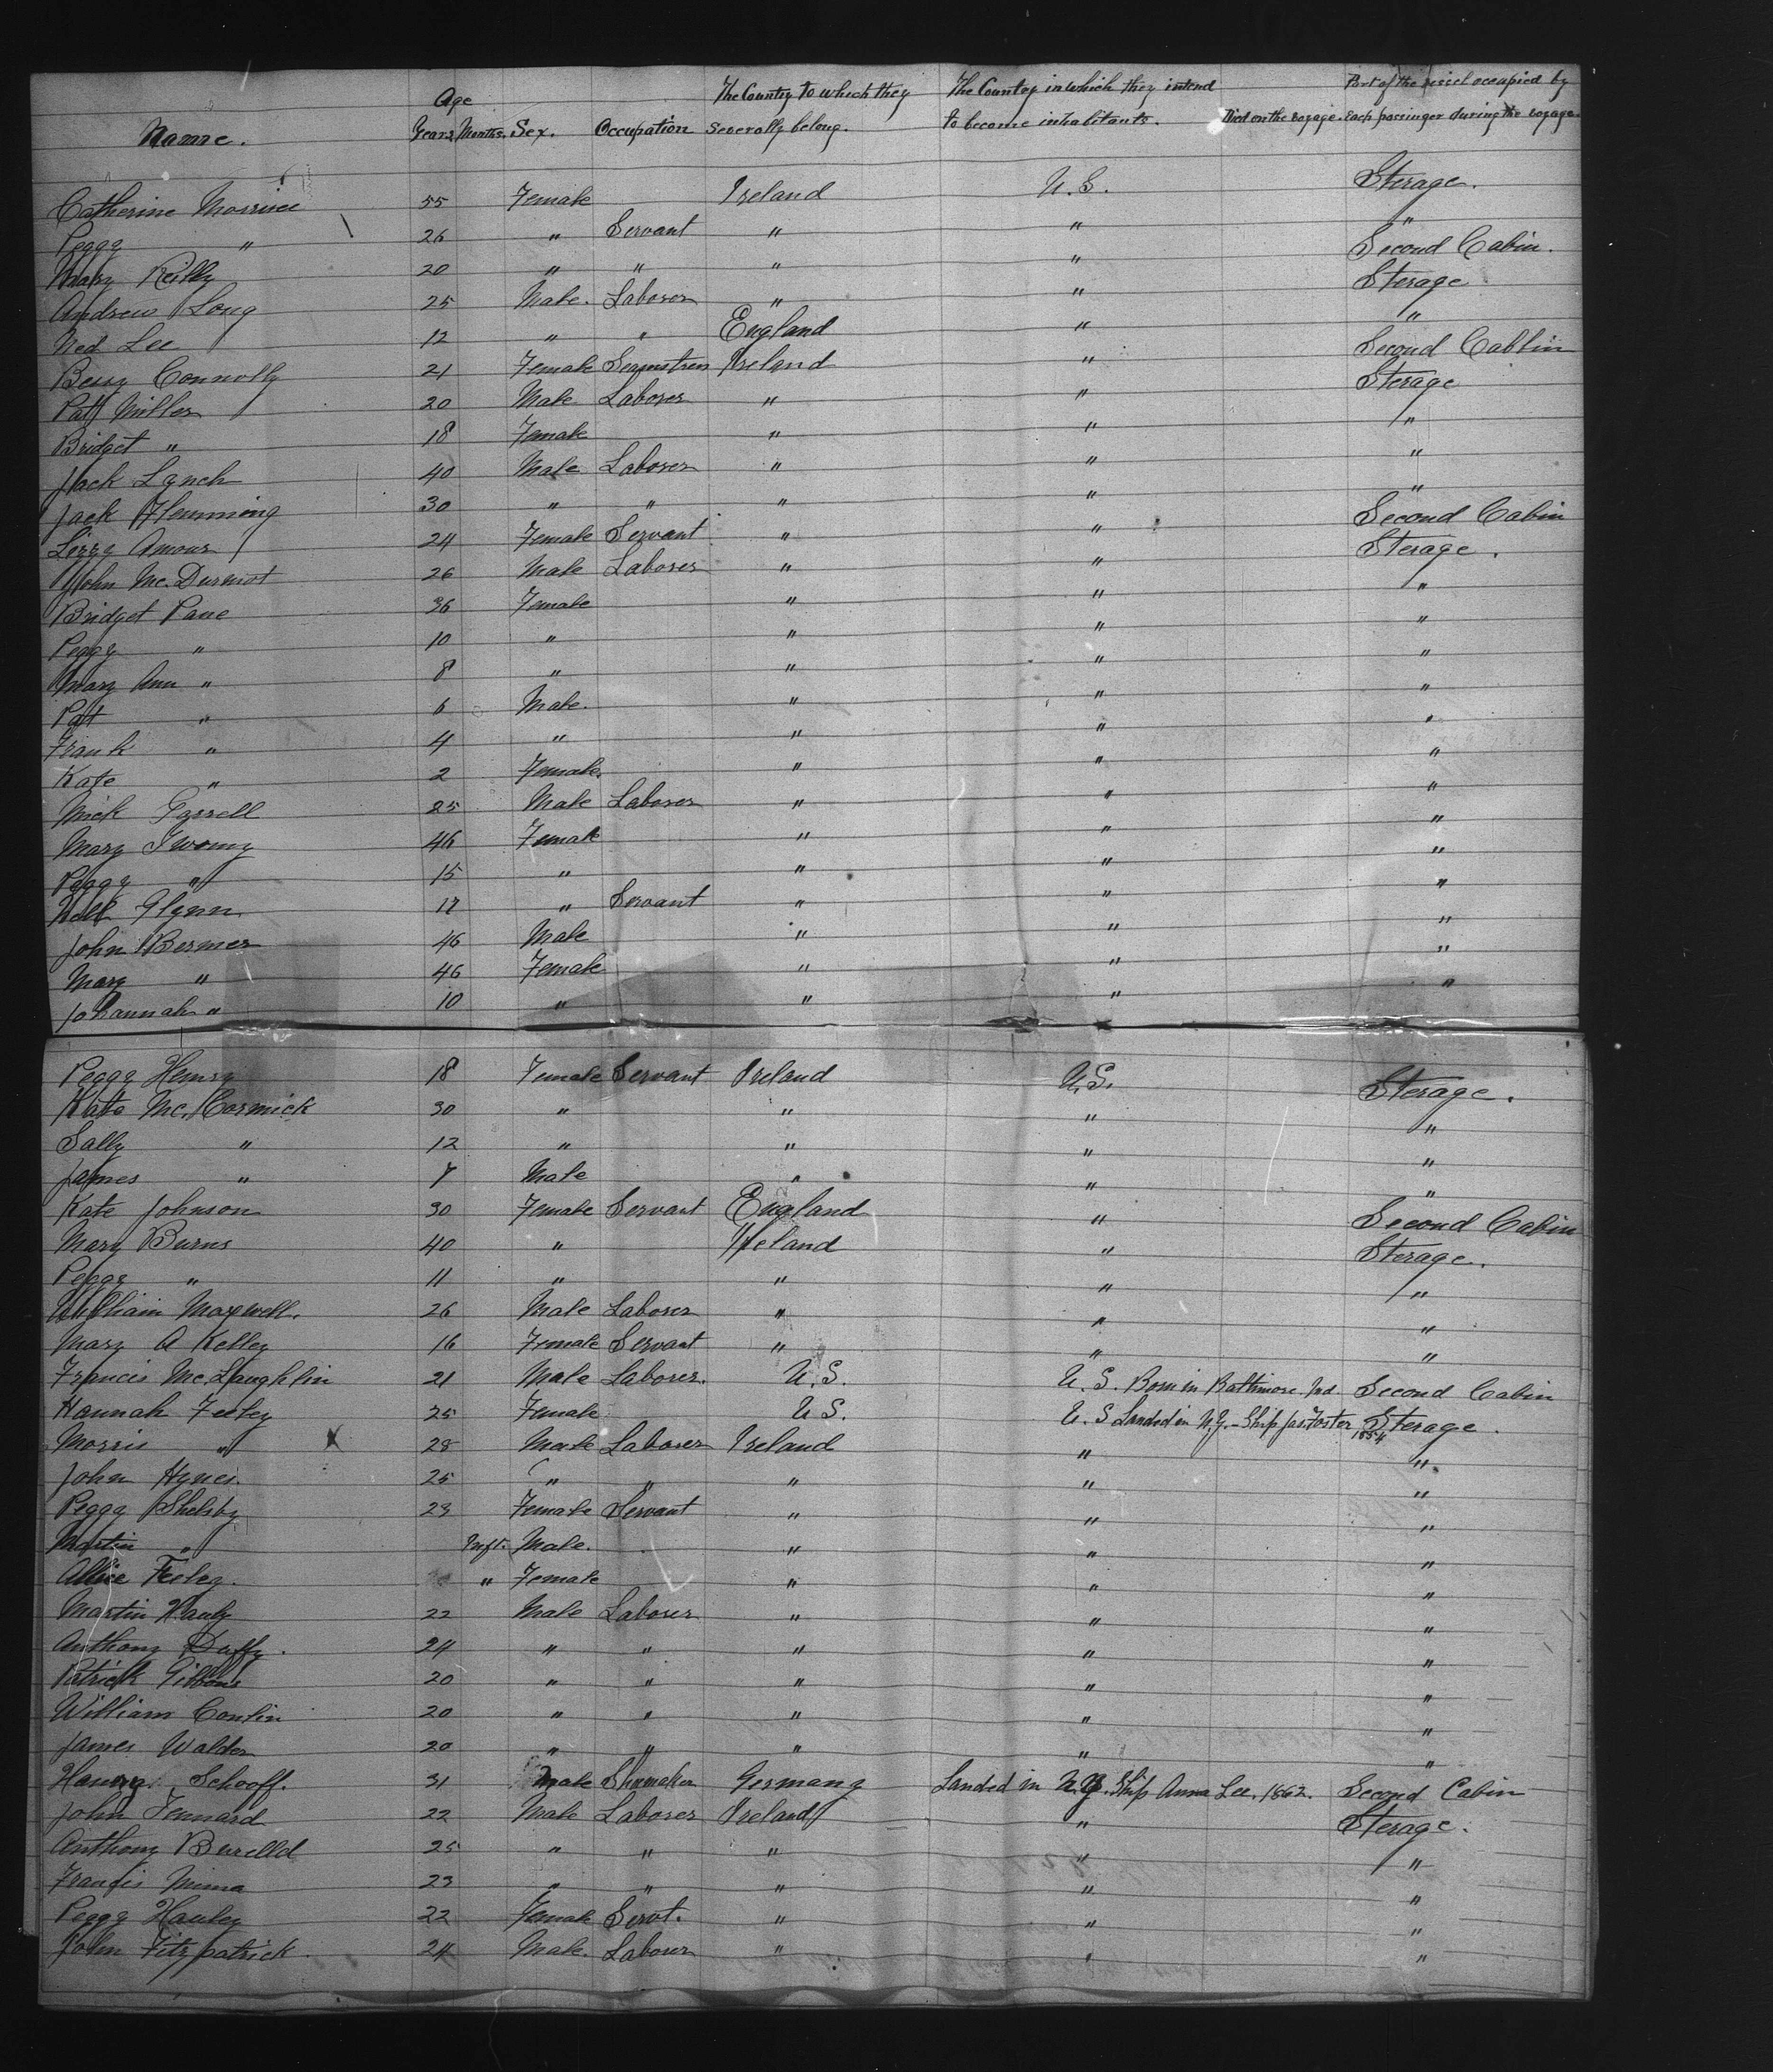 Name. Age Years Months. Sex. Occupation The Country to which they severally belong. The Country in which they intend to become inhabitants. Died on the voyage. Part of the vessel occupied by each passinger during the voyage.
Catherine 55 Female Ireland U.S. Sterage.
Peggy " 26 " Servant " " "
Mary Reilly 20 " " " " Second Cabin.
Andrew Long 25 Male. Laborer " " Sterage
Ned Lee 12 " " England " "
Bessy Connolly 21 Female Seamstress Ireland " Second Cabbin
Pat Miller 20 Male Laborer " " Sterage
Bridget " 18 Female " " "
Jack Lynch 40 Male Laborer " " "
Jack Flemming 30 " " " " "
Lizzy Amour 24 Female Servant " " Second Cabin
John Mc. Durmot 26 Male Laborer " " Sterage.
Bridget Pane 36 Female " " "
Peggy " 10 " " " "
Mary Ann " 8 " " " "
Pat " 6 Male. " " "
Frank " 4 " " " "
Kate " 2 Female. " " "
Mick Garrell 25 Male Laborer " " "
Mary Twomy 46 Female " " "
Peggy " 15 " " " "
Glynn 17 " Servant " " "
John Bermer 46 Male " " "
Mary " 46 Female " " "
Johannah " 10 " " " "
Peggy Henry 18 Female Servant Ireland U.S. Sterage.
Kate Mc. Cormick 30 " " " "
Sally " 12 " " " "
James " 7 Male " " "
Kate Johnson 30 Female Servant England " Second Cabin
Mary Burns 40 " Ireland " Sterage.
Peggy " 11 " " " "
William Maxwell. 26 Male Laborer " " "
Mary A Kelley 16 Female Servant " " "
Francis Mc. Laughlin 21 Male Laborer. U.S. U.S. Born in Balthimore Md. Second Cabin
Hannah Feeley 25 Female U S. U.S Landed in N.Y. - Ship Jas. Foster 1854 Sterage.
Morris " x 28 Male Laborer Ireland " "
John Hynes. 25 " " " " "
Peggy Shelsby 23 Female Servant " " "
Martin " Inft. Male. " " "
Allice Feeley. " Female " " "
Martin Hauly 22 Male Laborer " " "
Anthony Duffy. 24 " " " " "
Patrick Gibbons 20 " " " " "
William Conlin 20 " " " " "
James Walder 20 " " " " "
Schooff. 31 Male Shumaker Germany Landed in N.Y. Ship Anna Lee. 1862. Second Cabin
John Tennard 22 Male Laborer Ireland " Sterage.
Anthony Burelld 25 " " " " "
Francis Mima 23 " " " " "
Peggy Hauley 22 Female Servt. " " "
John Fitzpatrick. 24 Male. Laborer " " "